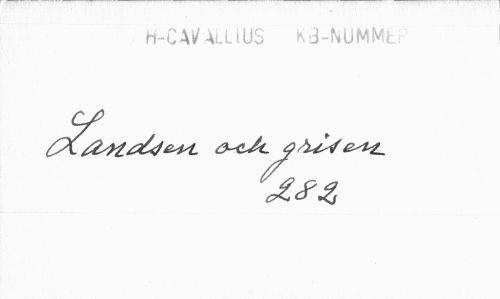 H-CAVALLIUS KB-NUMMER
Landsen och grisen
282